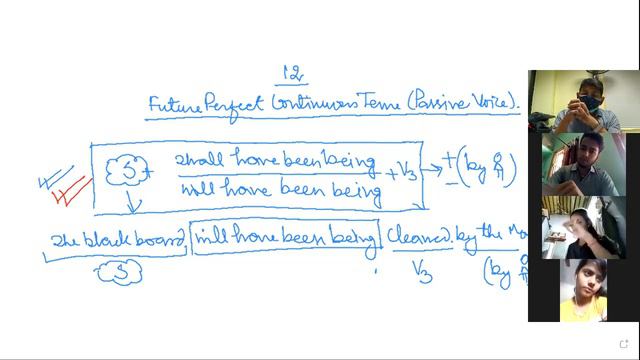 12
Future Perfect Continuous Tense (Passive Voice).
S + shall have been being / will have been being + V3 → ± (by
The black board will have been being cleaned. by the
S V3 (by